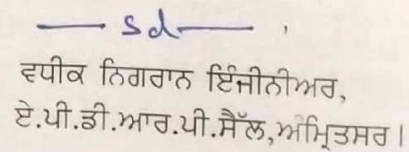 — sd —
ਵਧੀਕ ਨਿਗਰਾਨ ਇੰਜੀਨੀਅਰ,
ਏ.ਪੀ.ਡੀ.ਆਰ.ਪੀ.ਸੈੱਲ,ਅੰਮ੍ਰਿਤਸਰ।